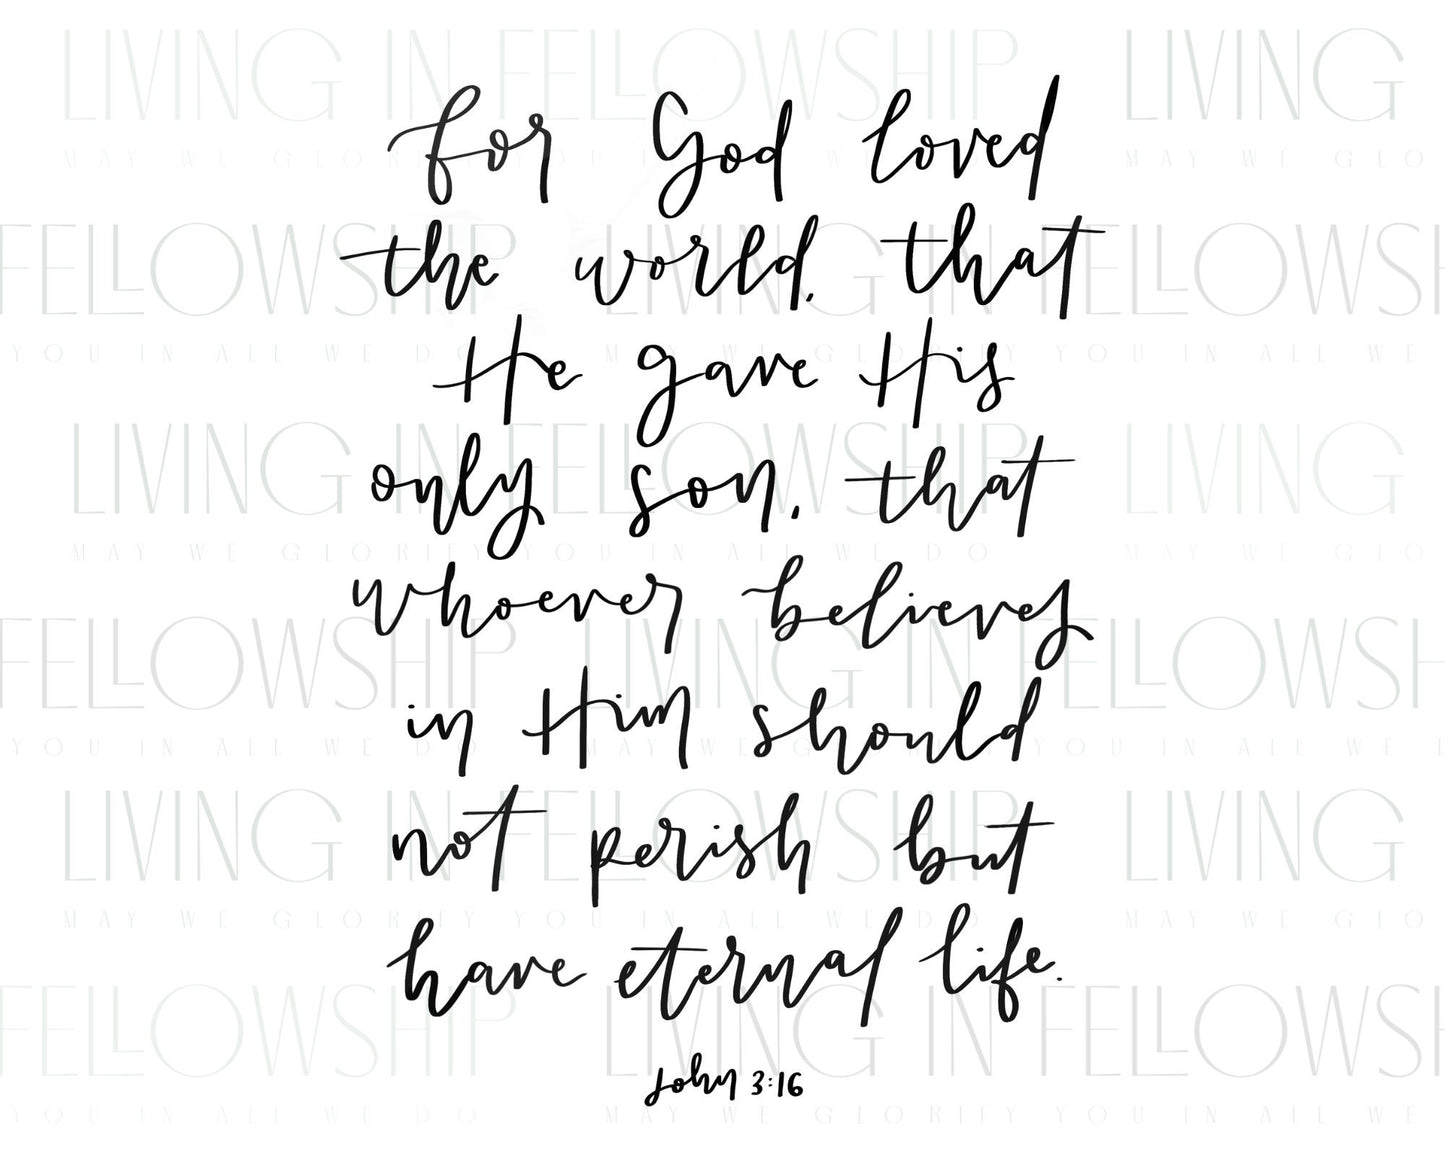 LIVING IN FELLOWSHIP LIVING
MAY WE GLORIFY YOU IN ALL WE DO MAY WE GLO
for God loved
FELLOWSHIP LIVING IN FELLOWSHIP
YOU IN ALL WE DO MAY WE GLORIFY YOU IN ALL WE
the world, that
He gave His
LIVING IN FELLOWSHIP LIVING
MAY WE GLORIFY YOU IN ALL WE DO MAY WE GLO
only son, that
whoever believes
FELLOWSHIP LIVING IN FELLOWSHIP
YOU IN ALL WE DO MAY WE GLORIFY YOU IN ALL WE
in Him should
LIVING IN FELLOWSHIP LIVING
MAY WE GLORIFY YOU IN ALL WE DO MAY WE GLO
not perish but
have eternal life.
FELLOWSHIP LIVING IN FELLOWSHIP
YOU IN ALL WE DO MAY WE GLORIFY YOU IN ALL WE
John 3:16